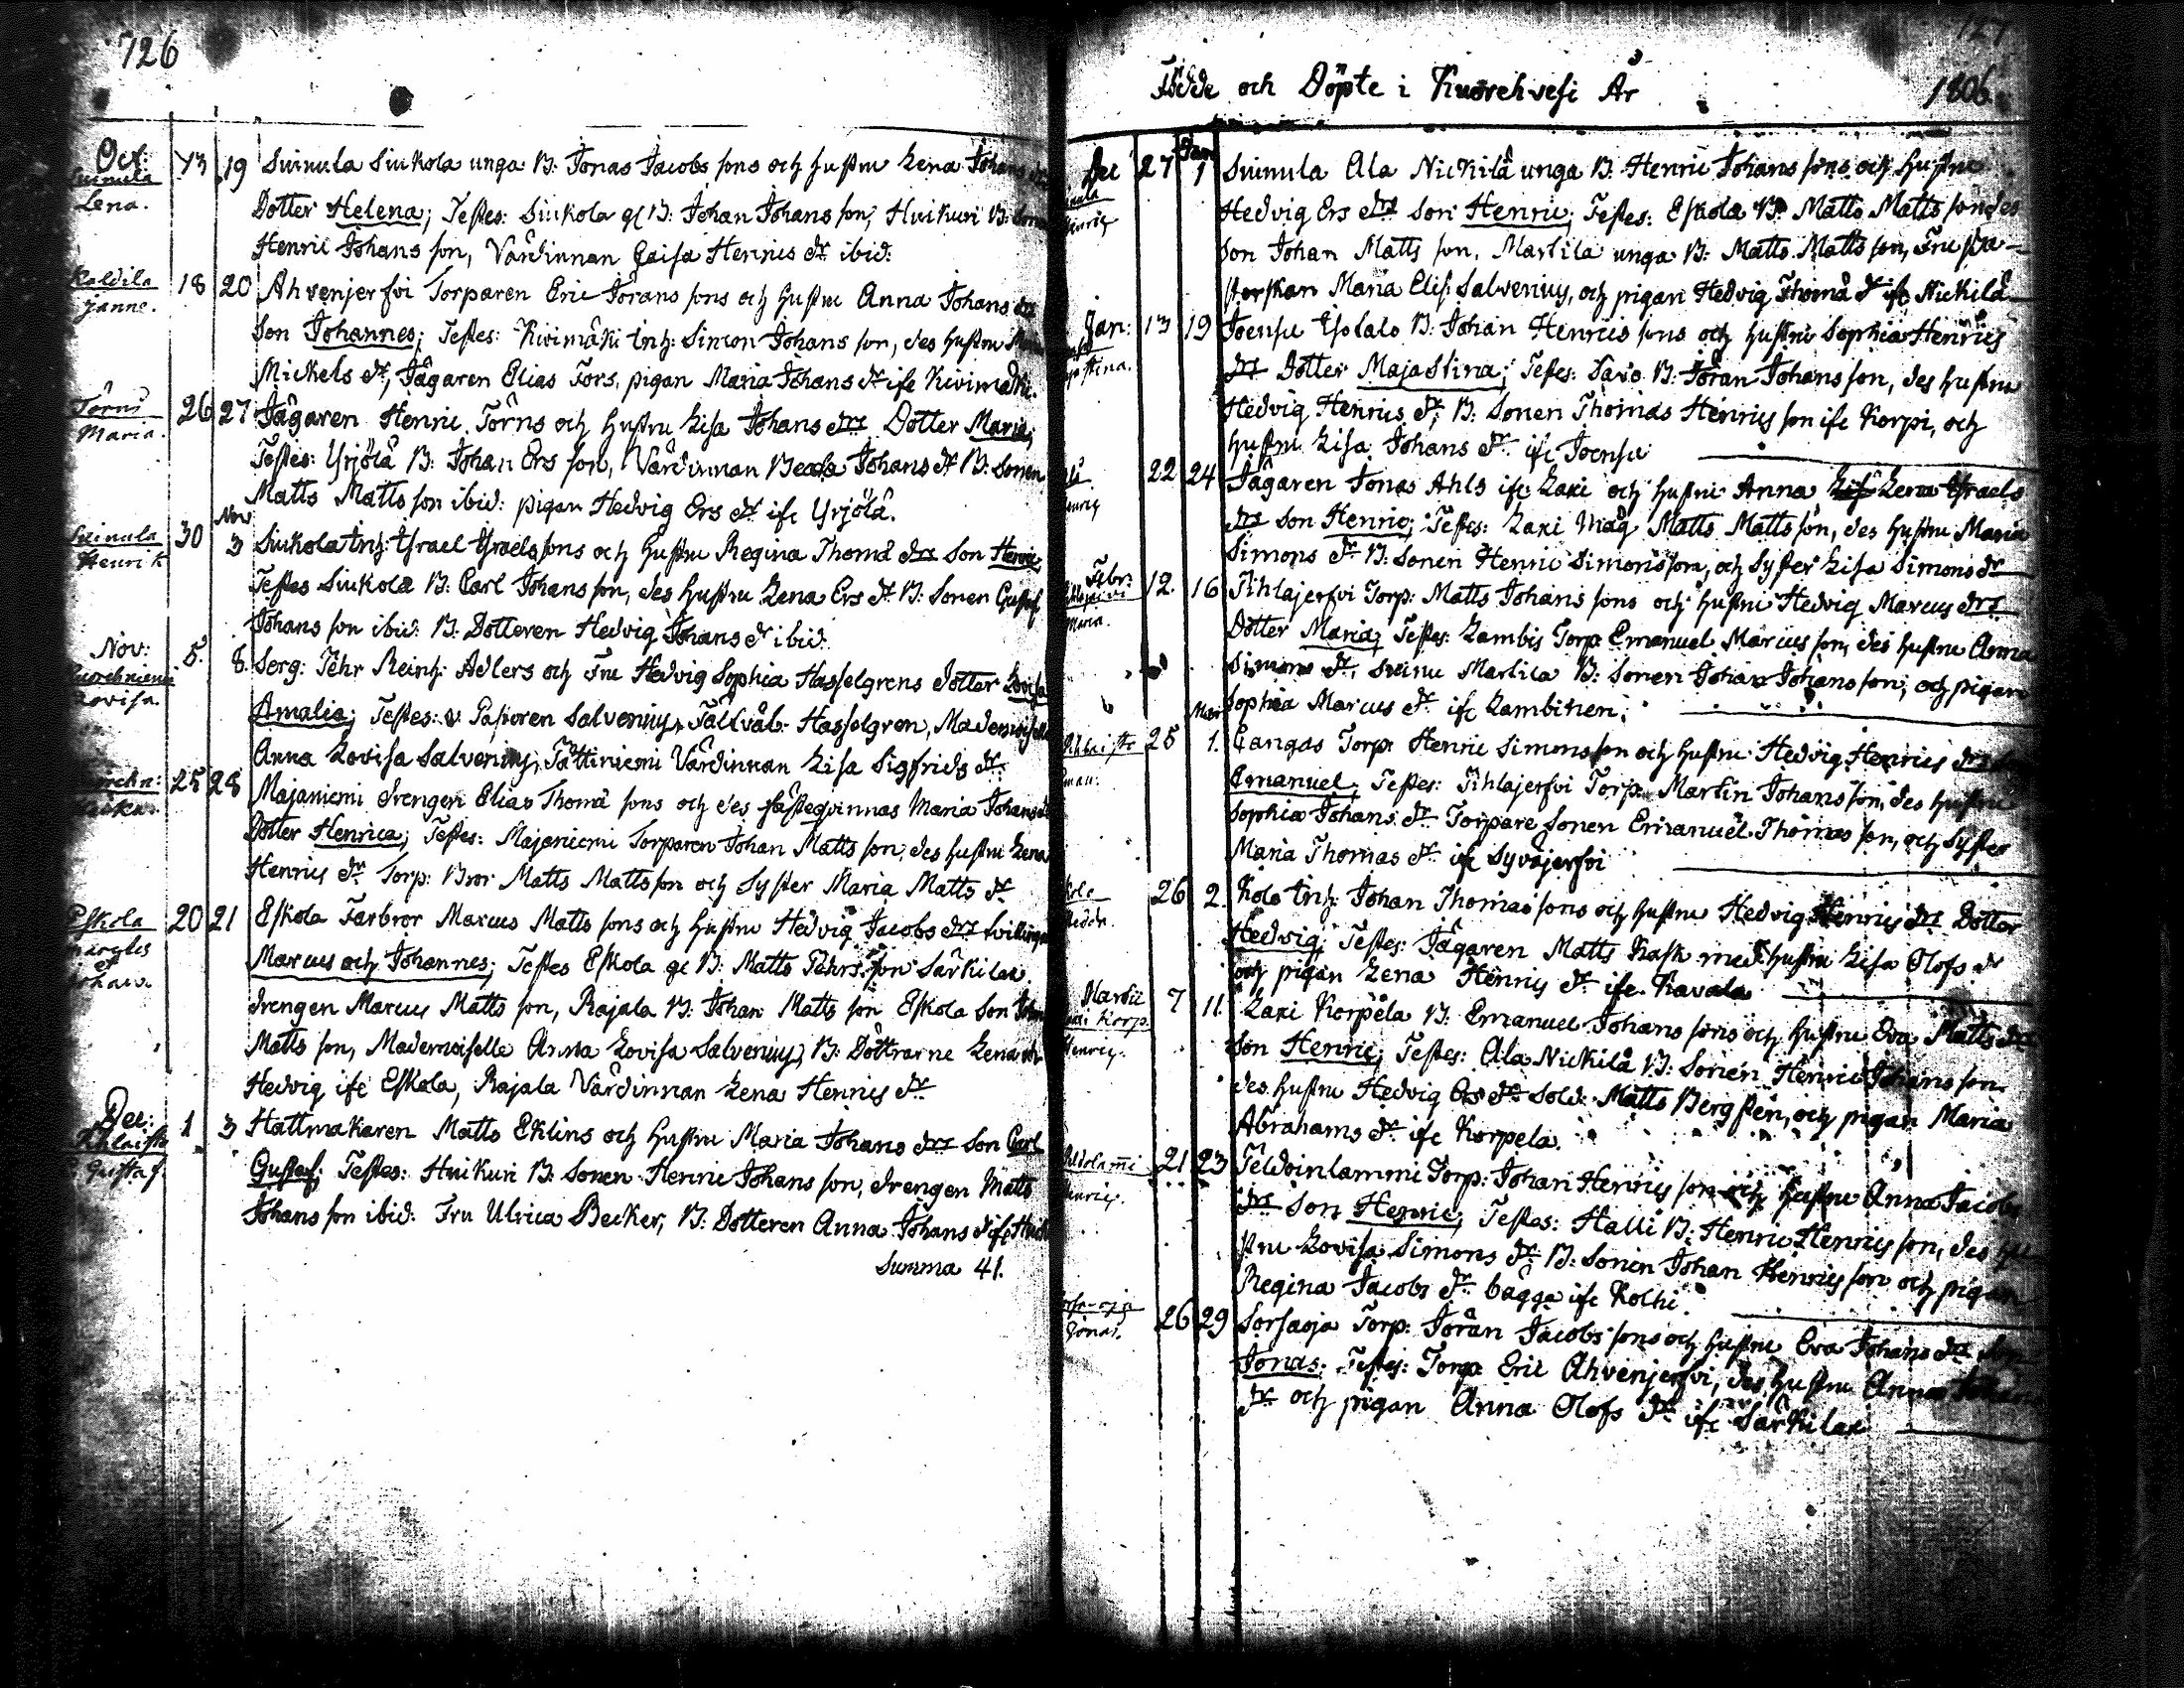 726
Oct: 13 19 Suinula Siukola unga B: Jonas Jacobs sons och hustru Lena Johans
Suinula Lena.
Dotter Helena; Testes: Siukola gl B: Johan Johans son, Huikuri B:
Henric Johans son, Värdinnan Caisa Henrics dr ibid:
Koldila Janne. 18 20 Ahvenjerfvi Torparen Eric Jörans sons och hustru Anna Johans
Son Johannes; Testes: Kivimäki Inh: Simon Johans son, des hustru
Mickels dr, Jägaren Elias Fors, pigan Maria Johans dr ifr Kivimäki.
Törns Maria. 26 27 Jägaren Henric Törns och hustru Lisa Johans drs Dotter Maria;
Testes: Yrjölä B: Johan Ers son, Värdinnan Beata Johans dr B: Sonen
Matts Matts son ibid: pigan Hedvig Ers dr ifr Yrjölä.
Suinula Henrik 30 Nov 3 Siukola Inh: Israel Israels sons och hustru Regina Thomä drs Son Henric
Testes Siukola B: Carl Johans son, des hustru Lena Ers dr B: Sonen Gustaf
Johans son ibid: B: Dotteren Hedvig Johans dr ibid:
Nov: Lovisa. 5. 8. Serg: Pehr Reinh: Adlers och Fru Hedvig Sophia Hasselgrens dotter Lovisa
Amalia; Testes: v: Pastoren Salvenius, Fältväb: Hasselgren, Mademoiselle
Anna Lovisa Salvenius, Pättiniemi Värdinnan Lisa Sigfrids dr:
25 28 Majaniemi drengen Elias Thomä sons och des fästeqvinnas Maria Johans
Dotter Henrica; Testes: Majaniemi Torparen Johan Matts son, des hustru Lena
Henrics dr Torp: Bror Matts Matts son och Syster Maria Matts dr
Eskola 20 21 Eskola Farbror Marcus Matts sons och hustru Hedvig Jacobs drs tvillingar
Marcus och Johannes; Testes Eskola gl B: Matts Pehrs son Särkilax
drengen Marcus Matts son, Rajala B: Johan Matts son Eskola Son
Matts son, Mademoiselle Anna Lovisa Salvenius, B: Döttrarne Lena och
Hedvig ifr Eskola, Rajala Värdinnan Lena Henrics dr
Dec: Gustaf. 1 3 Hattmakaren Matts Eklins och hustru Maria Johans drs Son Carl
Gustaf; Testes: Huikuri B: Sonen Henric Johans son, drengen Matts
Johans son ibid: Fru Ulrica Becker, B: Dotteren Anna Johans d ifr
Summa 41.
727
Födde och Döpte i Kuorehvesi År 1806.
Dec 27 Jan 1 Suinula Ala Nickilä unga B: Henric Johans sons och hustru
Hedvig Ers drs Son Henric; Testes: Eskola B: Matts Matts son des
Son Johan Matts son, Martila unga B: Matts Matts son, Fru Pa-
storskan Maria Elis: Salvenius, och pigan Hedvig Thomä dr ifr Nickilä
Jan: 13 19 Joensu Isolalo B: Johan Henrics sons och hustru Sophia Henrics
drs Dotter Maja Stina; Testes: Paro B: Jöran Johans son, des hustru
Hedvig Henrics dr, B: Sonen Thomas Henrics son ifr Korpi, och
hustru Lisa Johans dr ifr Joensu
22 24 Jägaren Jonas Ahls ifr Laxi och hustru Anna Lena Israels
drs Son Henric; Testes: Laxi Måg Matts Matts son, des hustru Maria
Simons dr B: Sonen Henric Simons son, och Syster Lisa Simons dr
Febr: Maria. 12. 16 Pihlajerfvi Torp: Matts Johans sons och hustru Hedvig Marcus drs
Dotter Maria; Testes: Lambis Torp: Emanuel Marcus son, des hustru Anna
Simons dr, Martila B: Sonen Johan Johans son, och pigan
Sophia Marcus dr ifr Lambinen;
25 Mars 1. Gangas Torp: Henric Simons son och hustru Hedvig Henrics drs
Emanuel; Testes: Pihlajerfvi Torp: Martin Johans son, des hustru
Sophia Johans dr Torpare Sonen Emanuel Thomas son, och Syster
Maria Thomas dr ifr Syväjerfvi
26 2. Kolo Inh: Johan Thomas sons och hustru Hedvig Henrics drs Dotter
Hedvig; Testes: Jägaren Matts Rask med hustru Lisa Olofs dr
och pigan Lena Henrics dr ifr Kavala
Martii Korp. Henric. 7 11. Laxi Korpela B: Emanuel Johans sons och hustru Eva Matts drs
Son Henric; Testes: Ala Nickilä B: Sonen Henric Johans son
des hustru Hedvig Ers dr Sold: Matts Bergsten, och pigan Maria
Abrahams dr ifr Korpela.
21 23 Peldoinlammi Torp: Johan Henrics son och hustru Anna Jacobs
drs Son Henric; Testes: Halli B: Henric Henrics son, des hu-
stru Lovisa Simons dr B: Sonen Johan Henrics son och pigan
Regina Jacobs dr bägga ifr Kolhi.
Jonas. 26 29 Sorsaoja Torp: Jöran Jacobs sons och hustru Eva Johans drs Son
Jonas; Testes: Torp: Eric Ahvenjerfvi, des hustru Anna
dr och pigan Anna Olofs dr ifr Särkilax